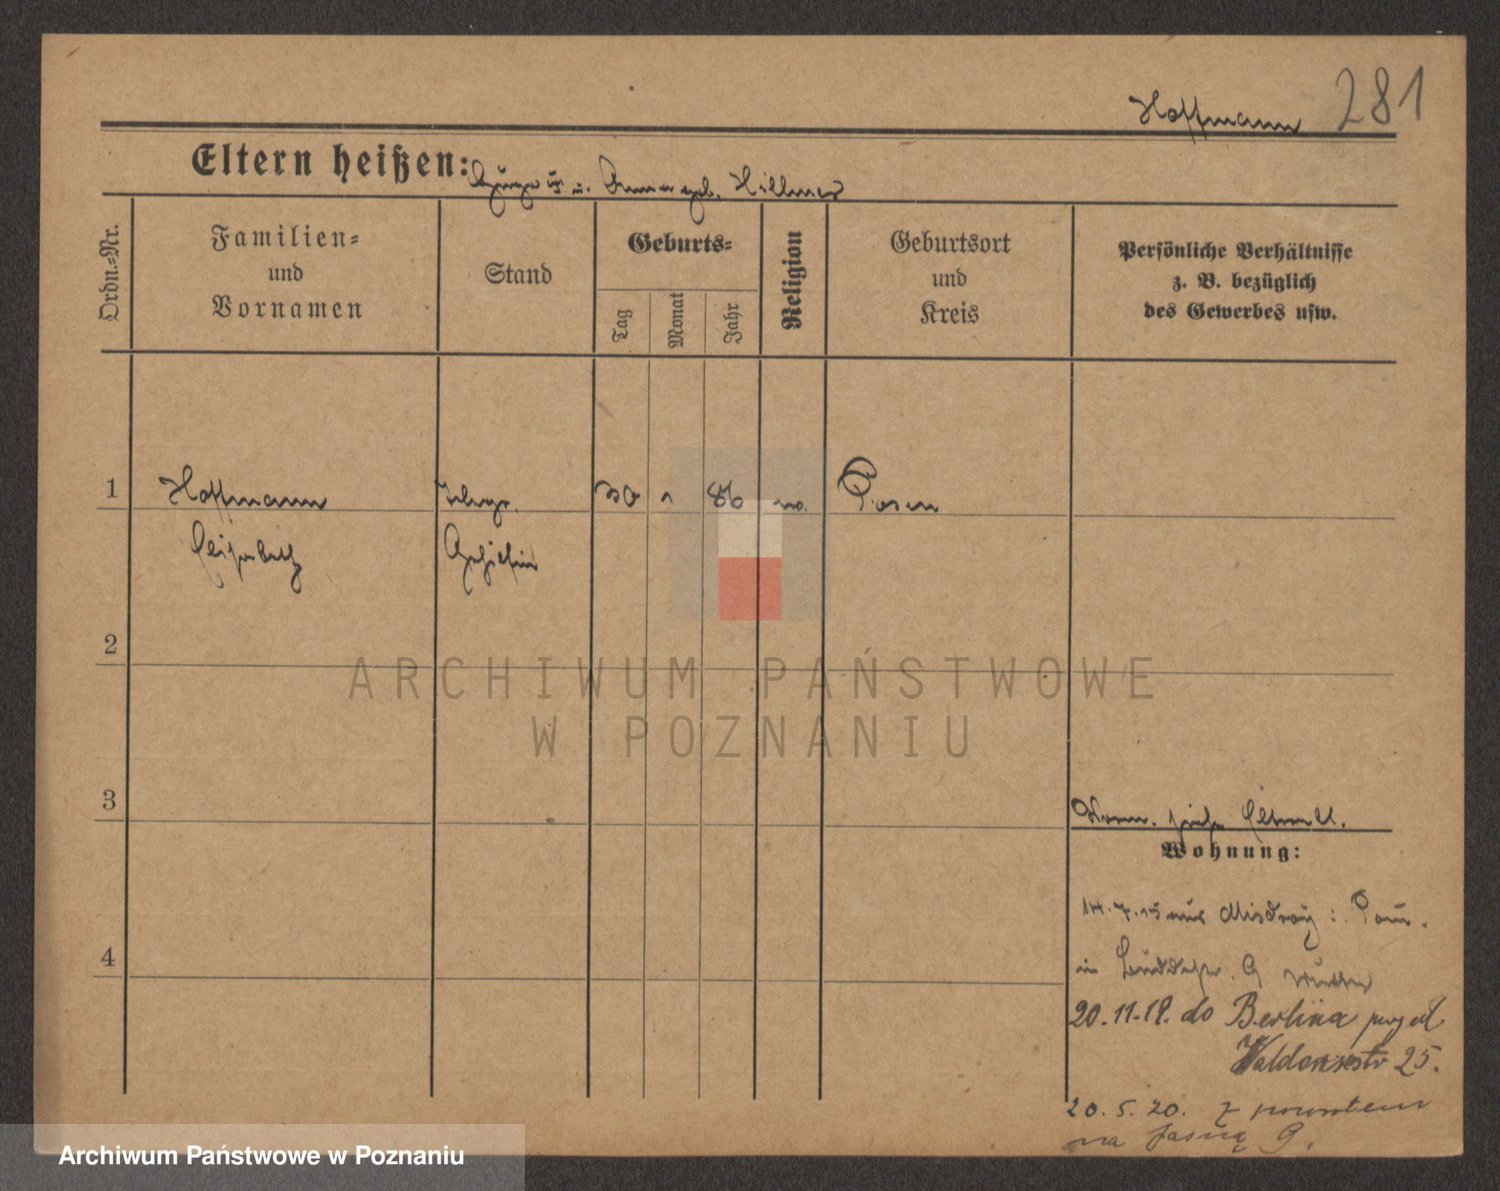 Hoffmann 281
Eltern heißen: u. Anna geb. Hillmer
Ordn.-Nr.
Familien-
und
Vornamen
Stand
Geburts-
Tag
Monat
Jahr
Religion
Geburtsort
und
Kreis
Persönliche Verhältnisse
z. B. bezüglich
des Gewerbes usw.
1 Hoffmann 30 1 86 Posen
Elisabeth Gehilfin
2
ARCHIWUM PAŃSTWOWE
W POZNANIU
3
Wohnung:
14.7.15 aus Misdroy i. Pom.
in 9 Mutter
4
20.11.19. do Berlina ul.
25.
20.5.20. z powrotem
na Jasną 9.
Archiwum Państwowe w Poznaniu